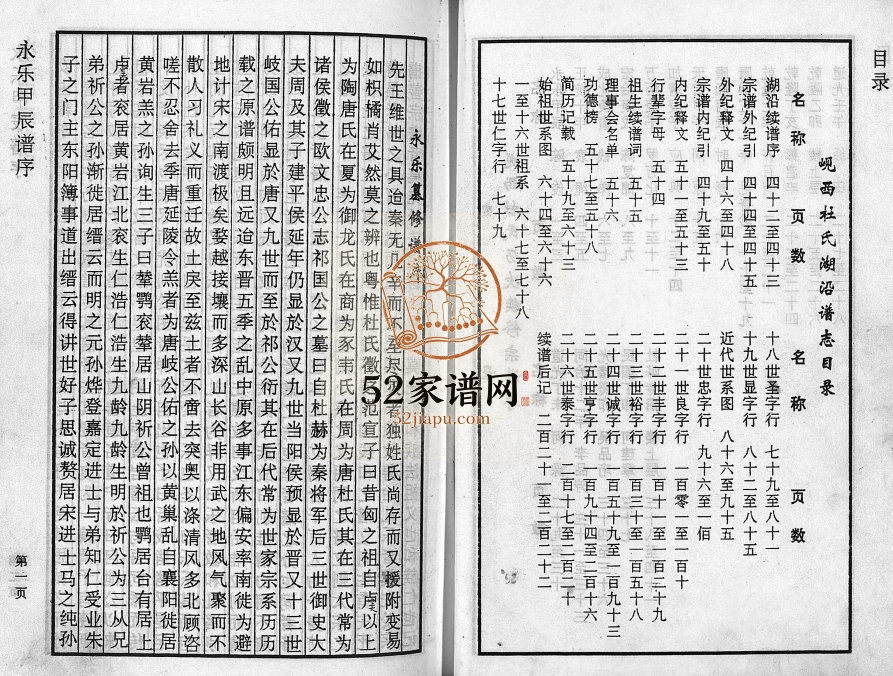 目录
岘西杜氏湖沿谱志目录
名称 页数 名称 页数
湖沿续谱序 四十二至四十三 十八世圣字行 七十九至八十一
宗谱外纪引 四十四至四十五 十九世显字行 八十二至八十五
外纪释文 四十六至四十八 近代世系图 八十六至九十五
宗谱内纪引 四十九至五十 二十世忠字行 九十六至一佰
内纪释文 五十一至五十三 二十一世良字行 一百零一至一百十
行辈字母 五十四 二十二世丰字行 一百十一至一百二十九
祖生续谱词 五十五 二十三世裕字行 一百三十至一百五十八
理事会名单 五十六 二十四世诚字行 一百五十九至一百九十三
功德榜 五十七至五十八 二十五世亨字行 一百九十四至二百十六
简历记载 五十九至六十三 二十六世泰字行 二百十七至二百二十
始祖世系图 六十四至六十六 续谱后记 二百二十一至二百二十二
一至十六世祖系 六十七至七十八
十七世仁字行 七十九
永乐甲辰谱序
永乐
先王维世之具迨秦无几
独姓氏尚存而又援附变易
如枳橘肖艾然莫之辨也粤惟杜氏徵
范宣子曰昔匄之祖自虞以上
为陶唐氏在夏为御龙氏在商为豕韦氏在周为唐杜氏其在三代常为
诸侯徵之欧文忠公志祁国公之墓曰自杜赫为秦将军后三世御史大
夫周及其子建平侯延年仍显於汉又九世当阳侯预显於晋又十三世
岐国公佑显於唐又九世而至於祁公衍其在后代常为世家宗系历历
载之原谱颇明且远迨东晋五季之乱中原多事江东偏安率南徙为避
地计宋之南渡极矣婺越接壤而多深山长谷非用武之地风气聚而不
散人习礼义而重迁故土戾至兹土者不啻去突奥以涤清风多北顾咨
嗟不忍舍去季唐延陵令羔者为唐岐公佑之孙以黄巢乱自襄阳徙居
黄岩羔之孙询生三子曰辇鹗衮辇居山阴祈公曾祖也鹗居台有居上
虞者衮居黄岩江北衮生仁浩仁浩生九龄九龄生明於祈公为三从兄
弟祈公之孙渐徙居缙云而明之元孙烨登嘉定进士与弟知仁受业朱
子之门主东阳簿事道出缙云得讲世好子思诚赘居宋进士马之纯孙
第一页
52家谱网
52jiapu.com